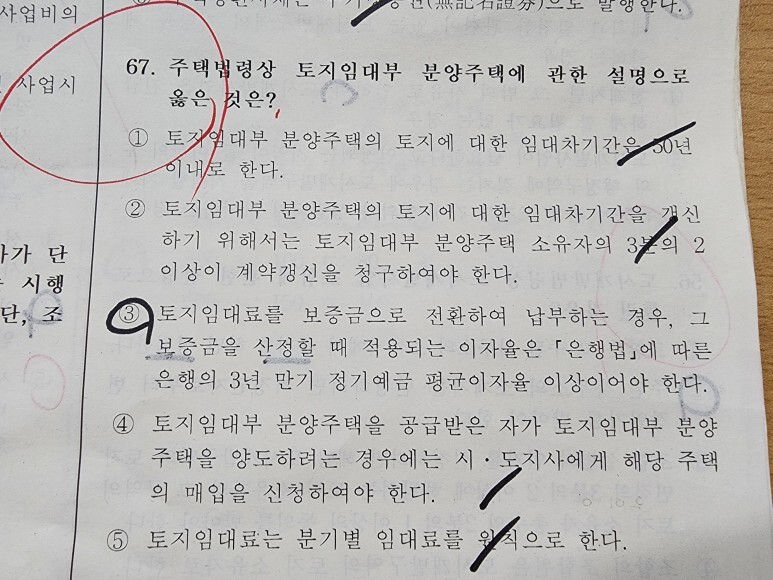 사업비의
(無記名證券)으로 발행한다.
사업시
67. 주택법령상 토지임대부 분양주택에 관한 설명으로
옳은 것은?
① 토지임대부 분양주택의 토지에 대한 임대차기간은 50년
이내로 한다.
② 토지임대부 분양주택의 토지에 대한 임대차기간을 갱신
하기 위해서는 토지임대부 분양주택 소유자의 3분의 2
이상이 계약갱신을 청구하여야 한다.
가 단
시행
단, 조
③ 토지임대료를 보증금으로 전환하여 납부하는 경우, 그
보증금을 산정할 때 적용되는 이자율은 「은행법」에 따른
은행의 3년 만기 정기예금 평균이자율 이상이어야 한다.
④ 토지임대부 분양주택을 공급받은 자가 토지임대부 분양
주택을 양도하려는 경우에는 시・도지사에게 해당 주택
의 매입을 신청하여야 한다.
⑤ 토지임대료는 분기별 임대료를 원칙으로 한다.